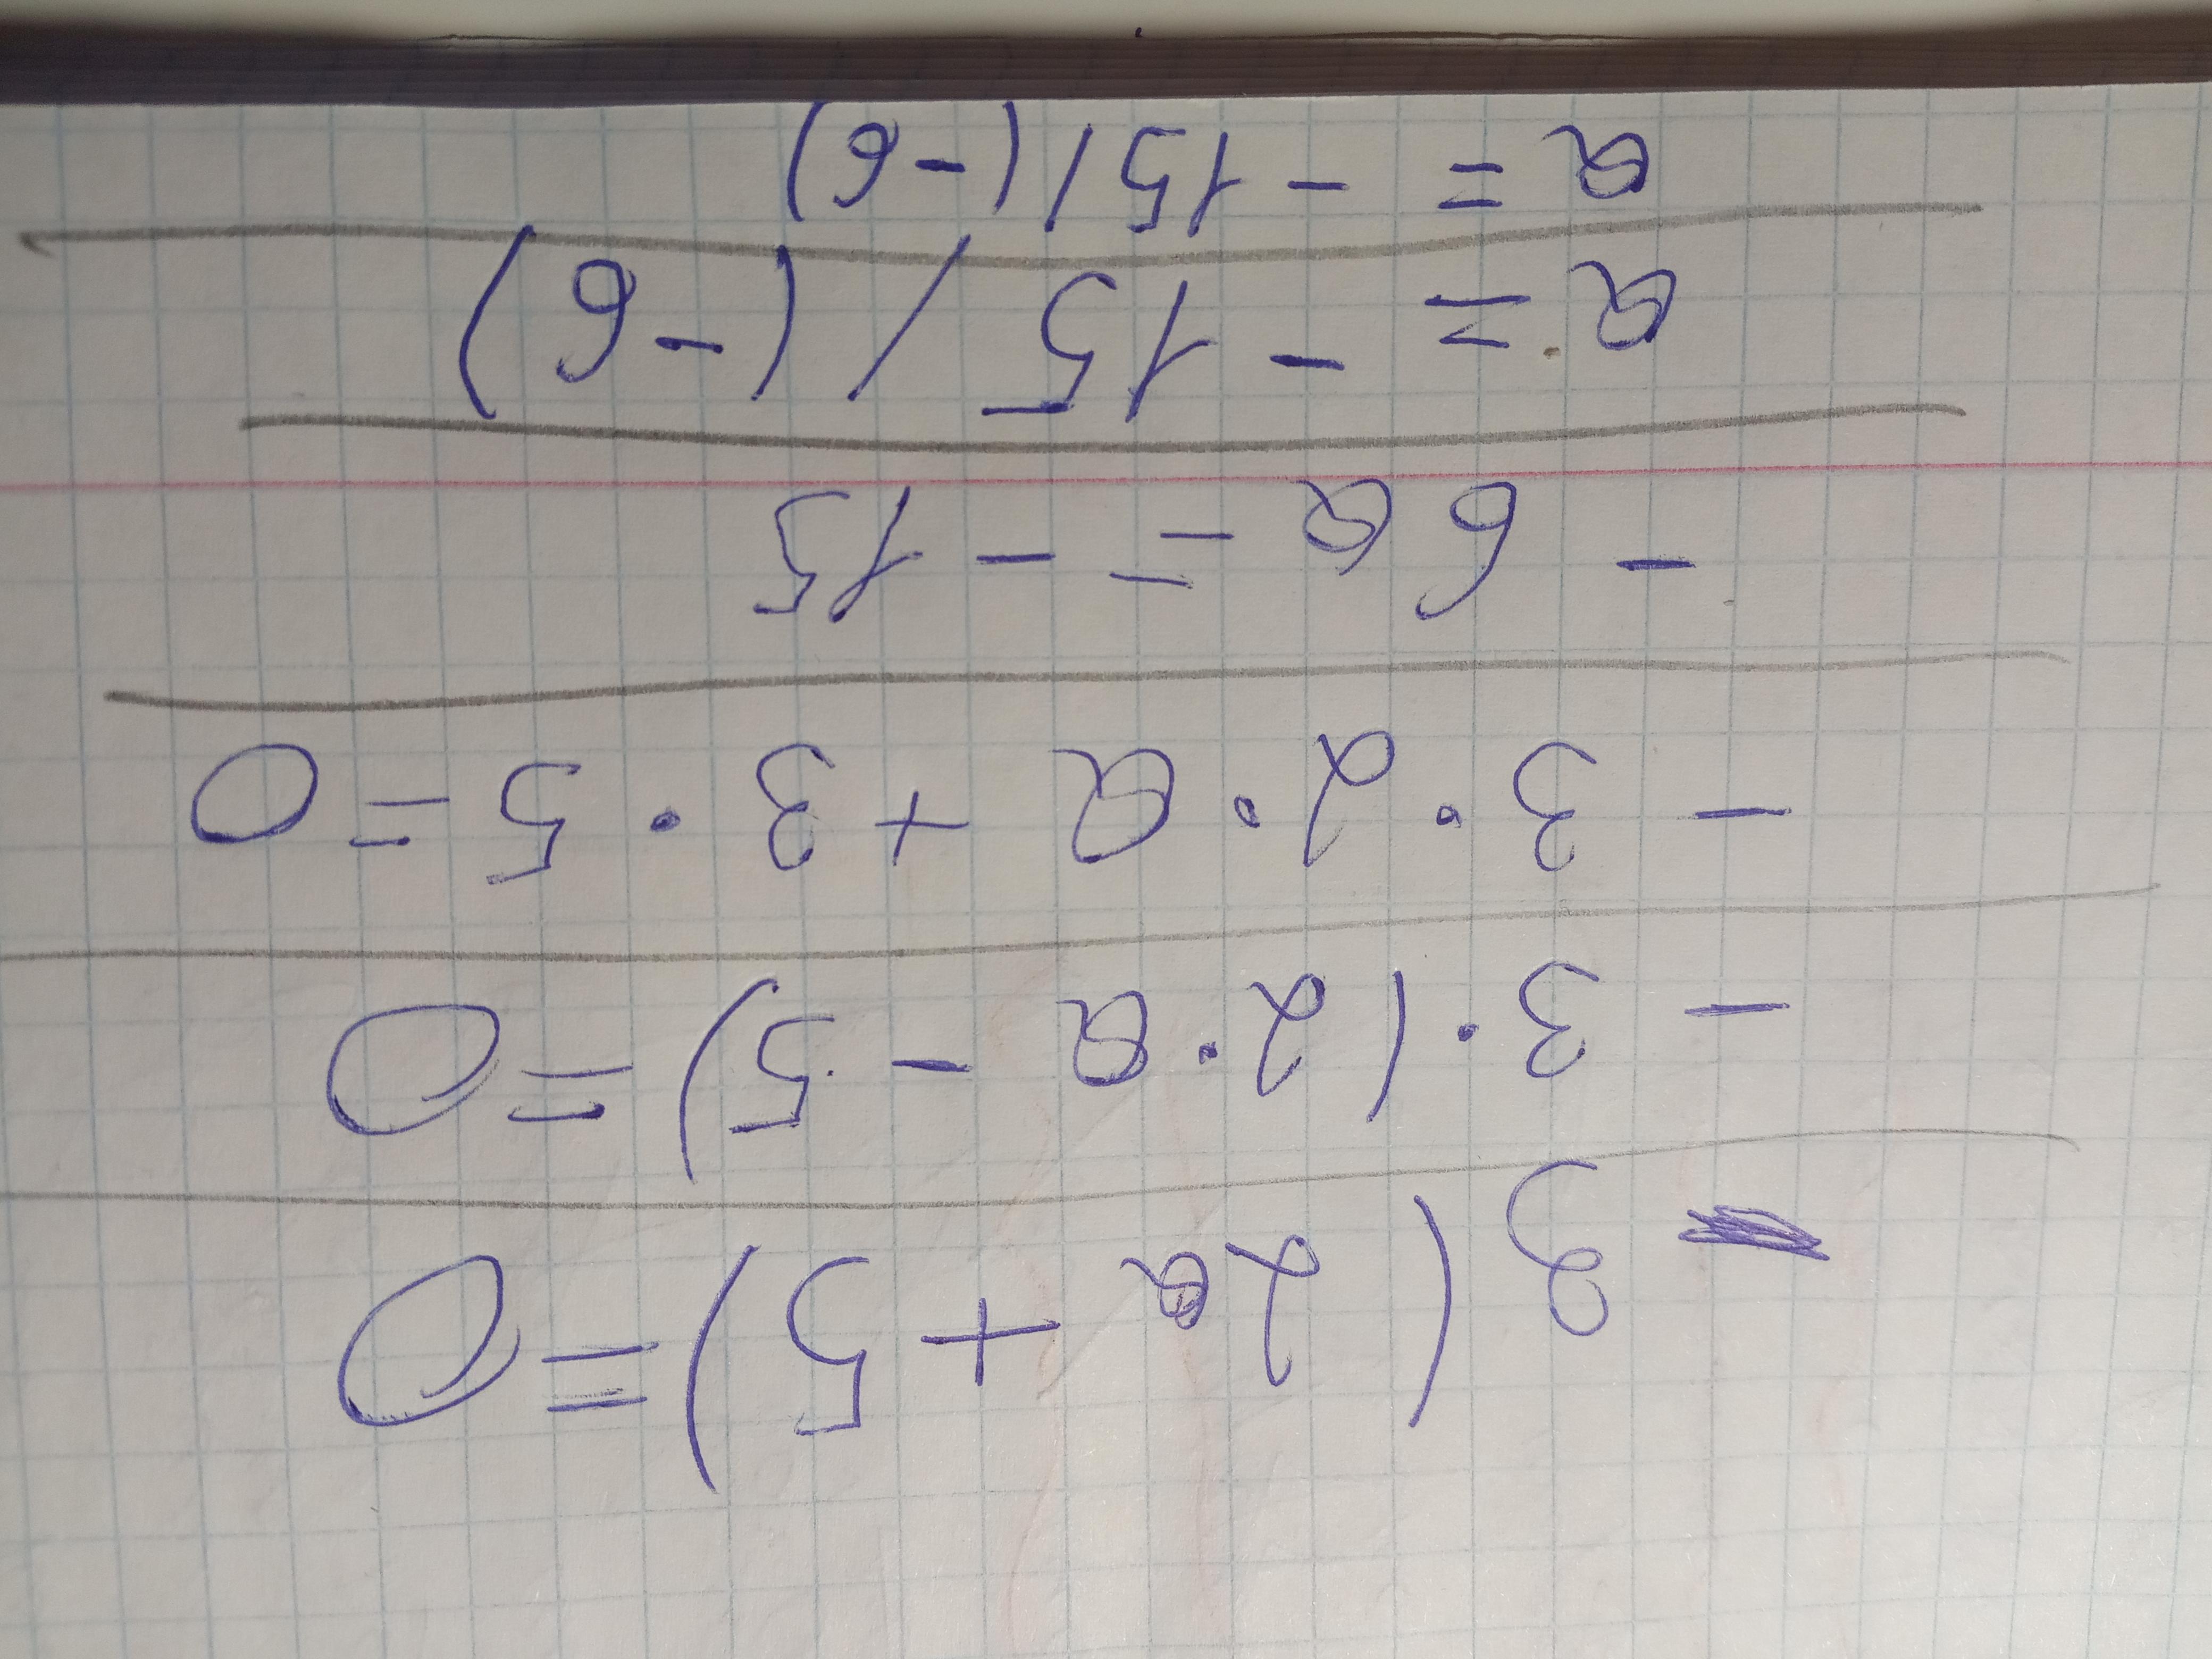 3(2a+5)=0
-3·(2·a-5)=0
-3·2·a+3·5=0
-6a=-15
a=-15/(-6)
a=-15/(-6)